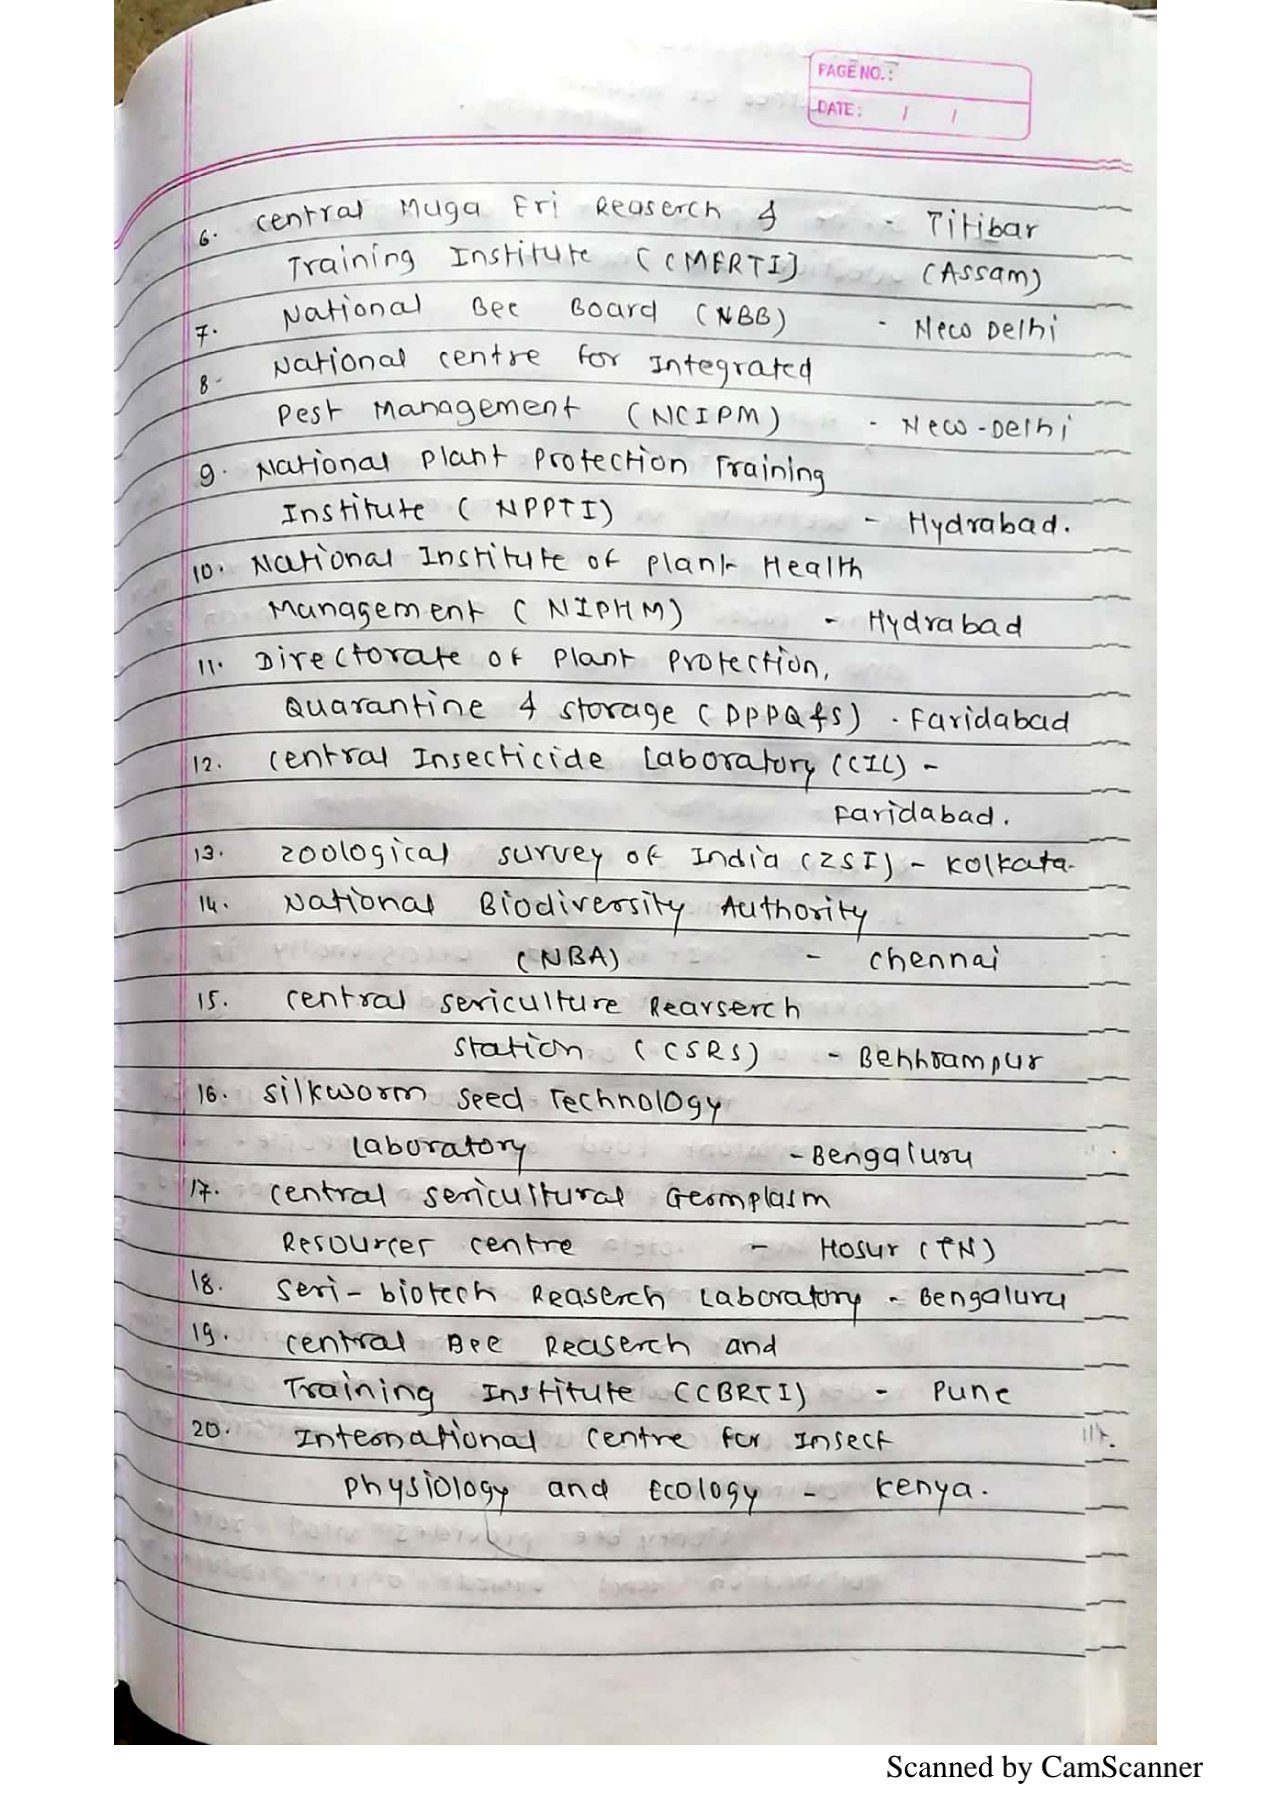 PAGE NO.:
DATE: / /
6. Central Muga Eri Reaserch & - Titibar
Training Institute (CMERTI) (Assam)
7. National Bee Board (NBB) - New Delhi
8. National centre for Integrated
Pest Management (NCIPM) - New-Delhi
9. National Plant Protection Training
Institute (NPPTI) - Hydrabad.
10. National Institute of plant Health
Management (NIPHM) - Hydrabad
11. Directorate of Plant Protection,
Quarantine & storage (DPPQ&S) - Faridabad
12. Central Insecticide Laboratory (CIL) -
Faridabad.
13. Zoological survey of India (ZSI) - Kolkata.
14. National Biodiversity Authority
(NBA) - Chennai
15. Central sericulture Rearserch
Station (CSRS) - Behhrampur
16. Silkworm Seed Technology
Laboratory - Bengaluru
17. Central Sericultural Germplasm
Resources centre - Hosur (TN)
18. Seri-biotech Reaserch Laboratory - Bengaluru
19. Central Bee Reaserch and
Training Institute (CBRTI) - Pune
20. International Centre for Insect
Physiology and Ecology - Kenya.
Scanned by CamScanner